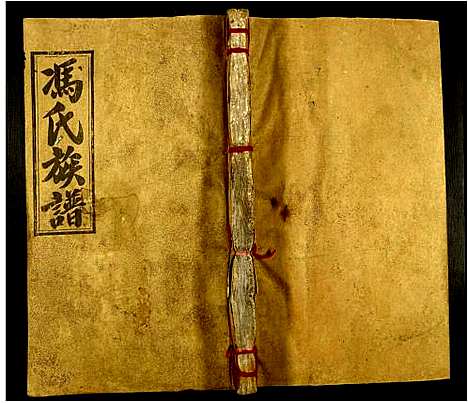 馮氏族譜